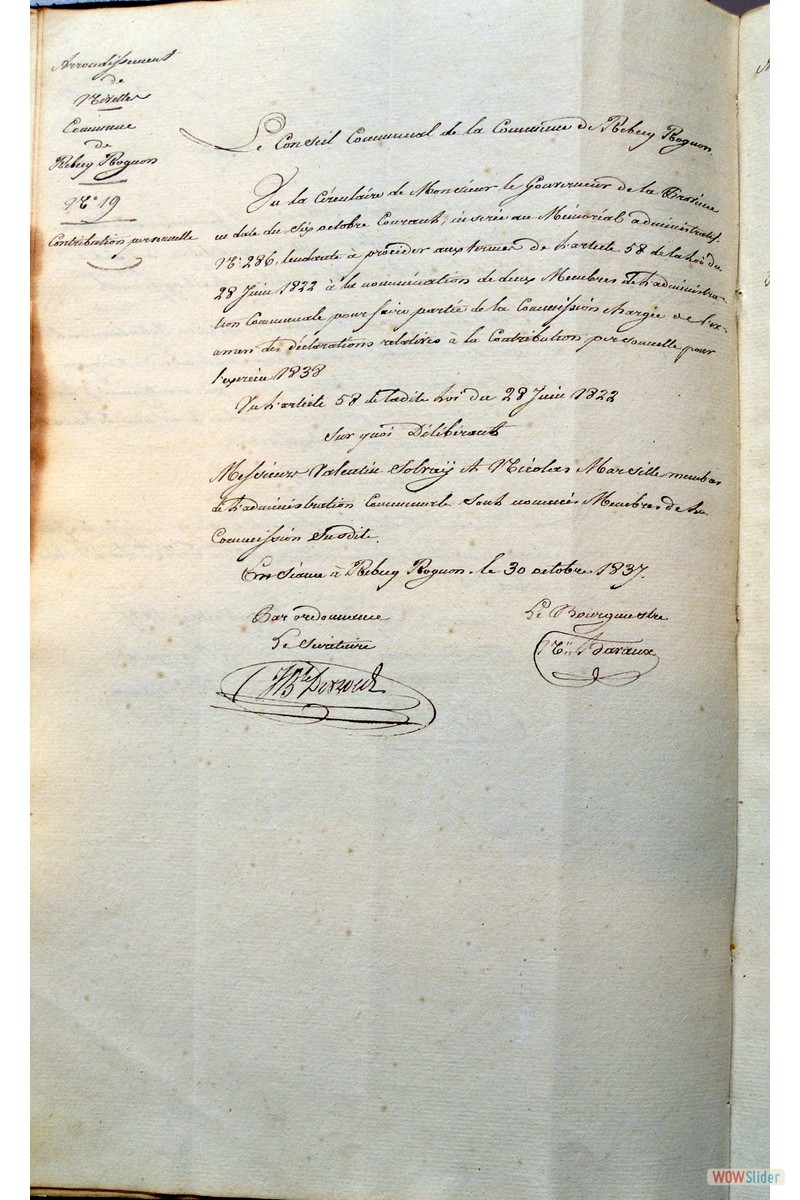 Arrondissement
de
Nivelles
Commune
de
Rebecq Rognon
N° 19
Contribution personnelle
Le Conseil Communal de la Commune de Rebecq Rognon.
Vu la Circulaire de Monsieur le Gouverneur de la Province
en date du Six octobre Courant, inserée au Mémorial administratif
N° 286, tendante à procéder aux termes de l'article 58 de la Loi du
28 Juin 1822 à la nomination de deux Membres de l'administra-
tion Communale pour faire partie de la Commission chargée de l'ex-
amen des déclarations relatives à la Contribution personnelle pour
l'exercice 1838
Vu l'article 58 de ladite Loi du 28 Juin 1822
Sur quoi Délibérant
Messieurs Valentin Solvaÿ et Nicolas Marsille membres
de l'administration Communale sont nommés Membres de la
Commission Susdite.
En Séance à Rebecq Rognon, le 30 octobre 1837.
Par ordonnance
Le Secrétaire
Le Bourgmestre
WOWSlider